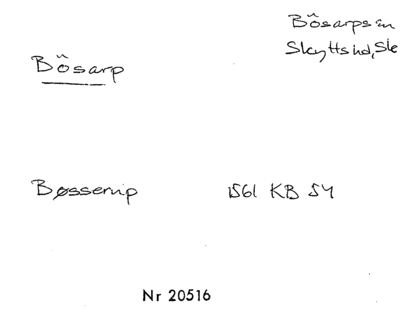 Bösarps sn
Skytts hd, Sk
Bösarp
Bøsserup 1561 KB 54
Nr 20516